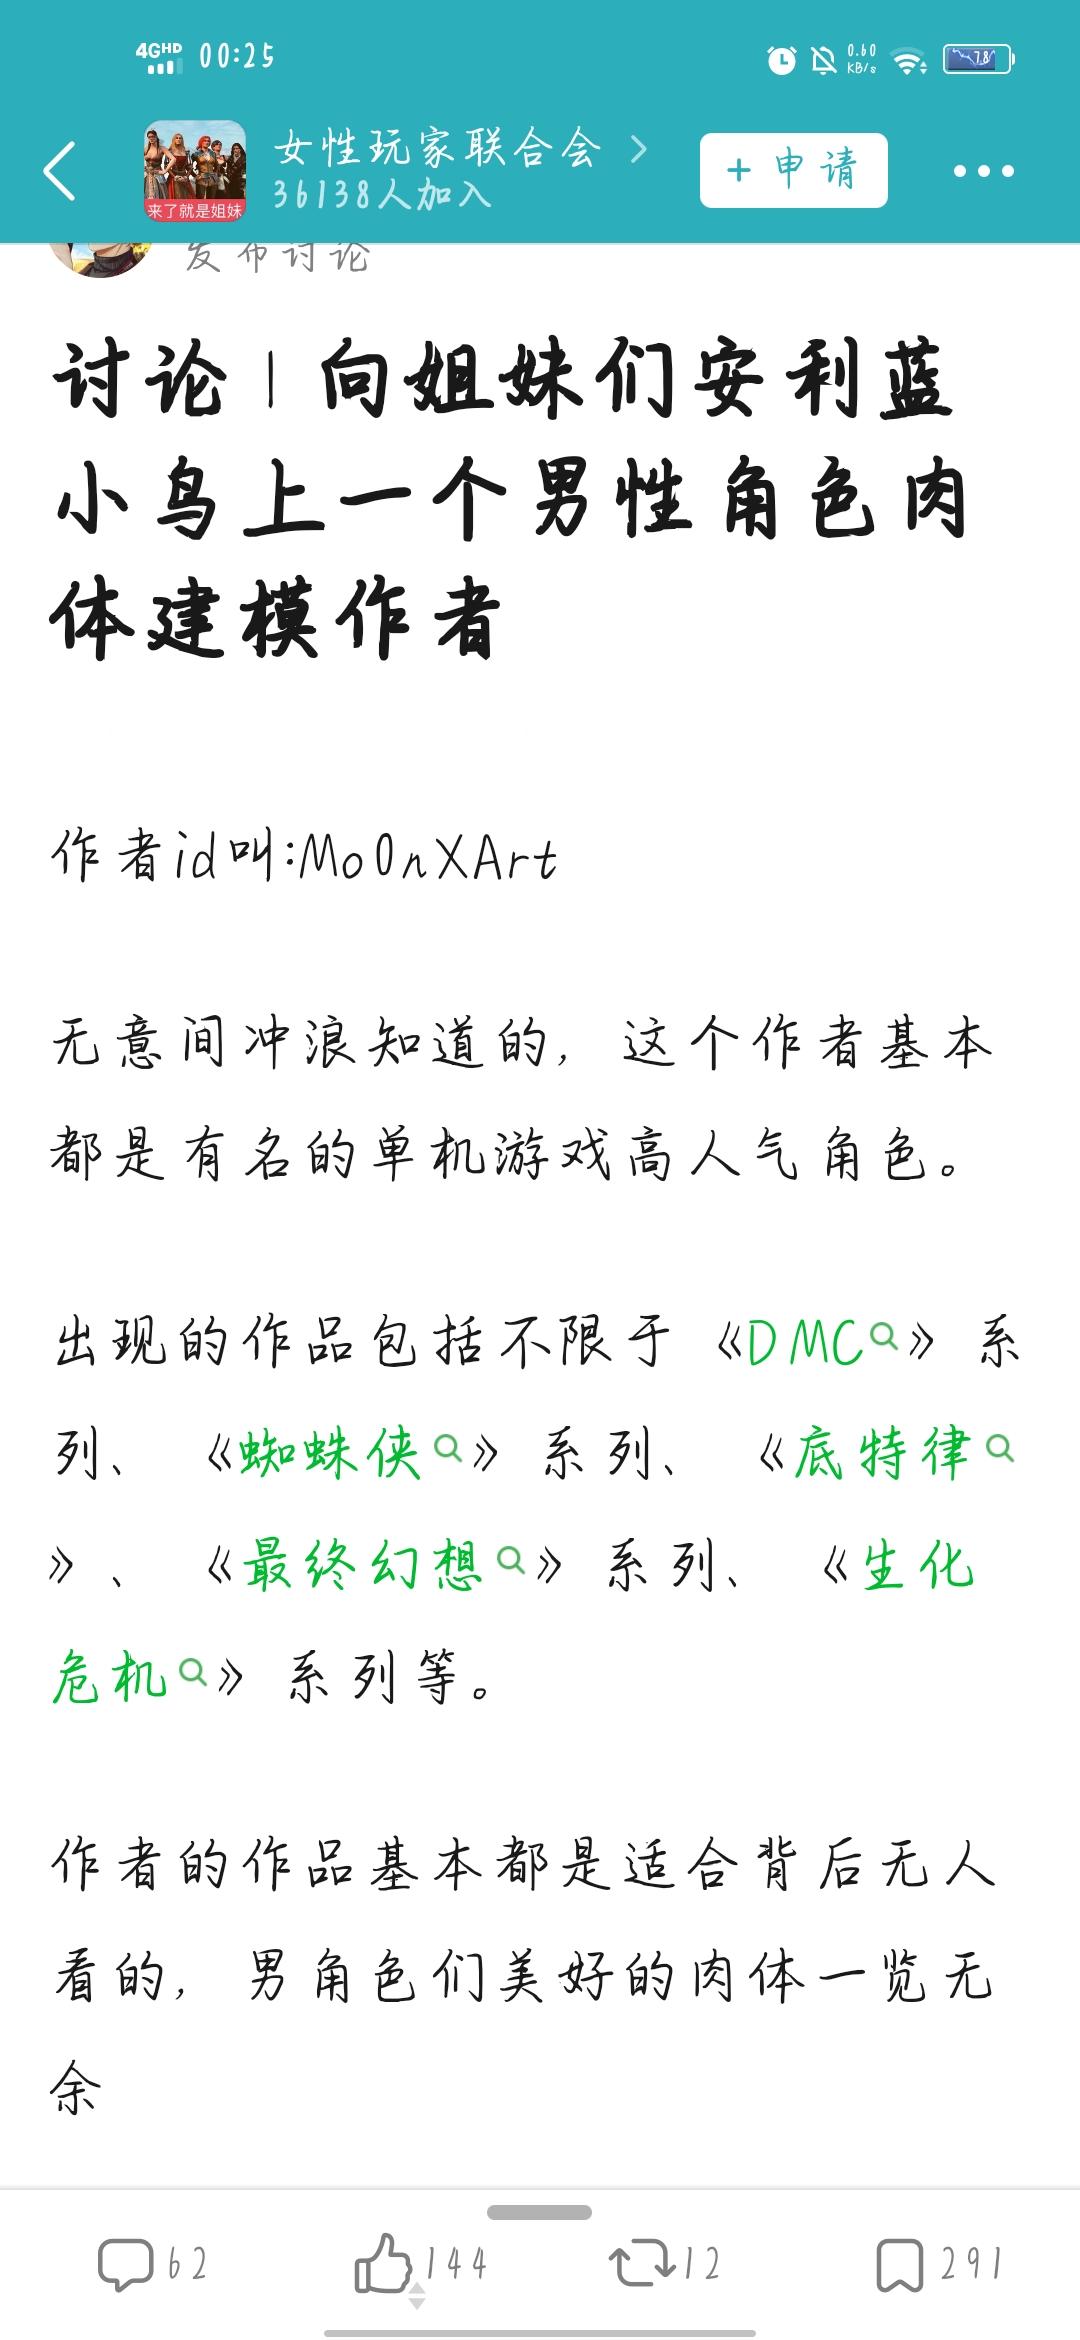 4GHD 00:25 0.60 KB/s 78
女性玩家联合会
36138人加入
+ 申请
来了就是姐妹
发布讨论
讨论 | 向姐妹们安利蓝
小鸟上一个男性角色肉
体建模作者
作者id叫:Mo0nXArt
无意间冲浪知道的, 这个作者基本
都是有名的单机游戏高人气角色。
出现的作品包括不限于《DMC》系
列、《蜘蛛侠》系列、《底特律
》、《最终幻想》系列、《生化
危机》系列等。
作者的作品基本都是适合背后无人
看的, 男角色们美好的肉体一览无
余
62 144 12 291